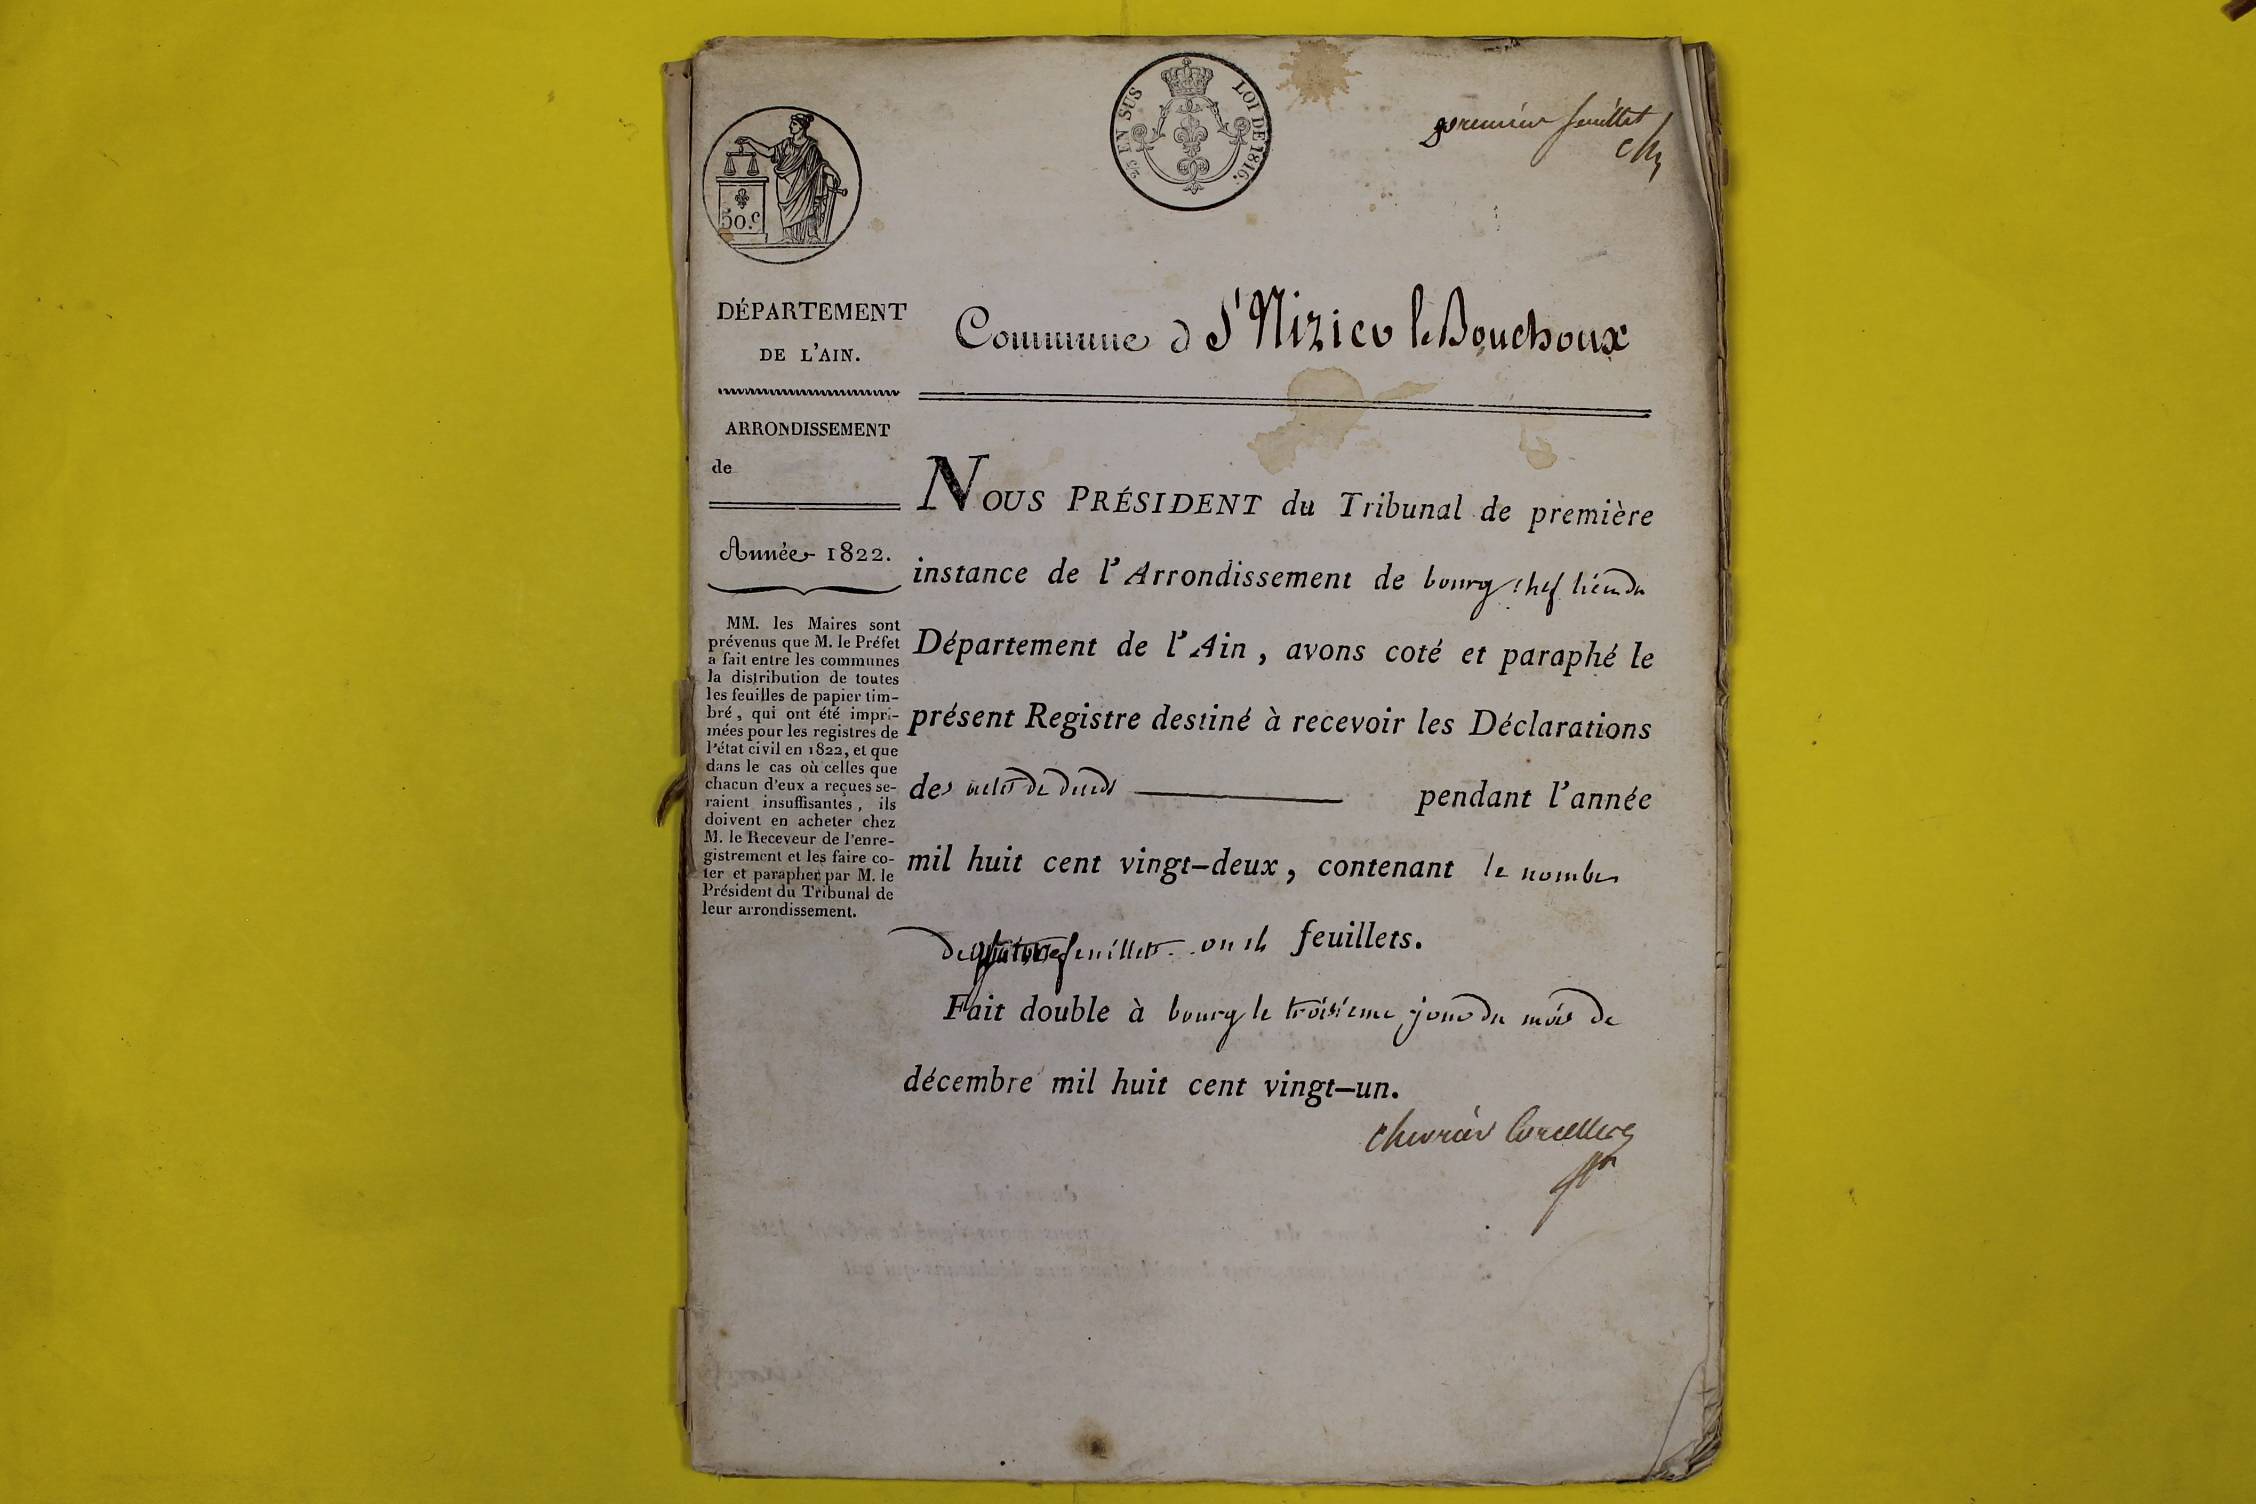 2/5 EN SUS LOI DE 1816.
premier feuillet
50.c
DÉPARTEMENT
DE L'AIN.
Commune d St Nizier le Bouchoux
ARRONDISSEMENT
de
Année 1822.
MM. les Maires sont
prévenus que M. le Préfet
a fait entre les communes
la distribution de toutes
les feuilles de papier tim-
bré, qui ont été impri-
mées pour les registres de
l'état civil en 1822, et que
dans le cas où celles que
chacun d'eux a reçues se-
raient insuffisantes, ils
doivent en acheter chez
M. le Receveur de l'enre-
gistrement et les faire co-
ter et parapher par M. le
Président du Tribunal de
leur arrondissement.
NOUS PRÉSIDENT du Tribunal de première
instance de l'Arrondissement de bourg chef lieu du
Département de l'Ain, avons coté et paraphé le
présent Registre destiné à recevoir les Déclarations
des actes de décès pendant l'année
mil huit cent vingt-deux, contenant le nombre
de feuillets ou feuillets.
Fait double à bourg le troisième jour du mois de
décembre mil huit cent vingt-un.